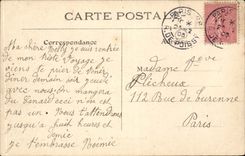 CARTE POSTALE
Correspondance
Ma chère Nelly je suis rentrée
de mon petit Voyage je
viens te prier de venir
dîner demain soir
avec nous on mangera
du canard ceci n'est
pas un. Nous t'attendrons
jusqu'à huit heures et
demie
Je t'embrasse Noémie
Madame Veuve
Plicheux
112 Rue de Turenne
Paris